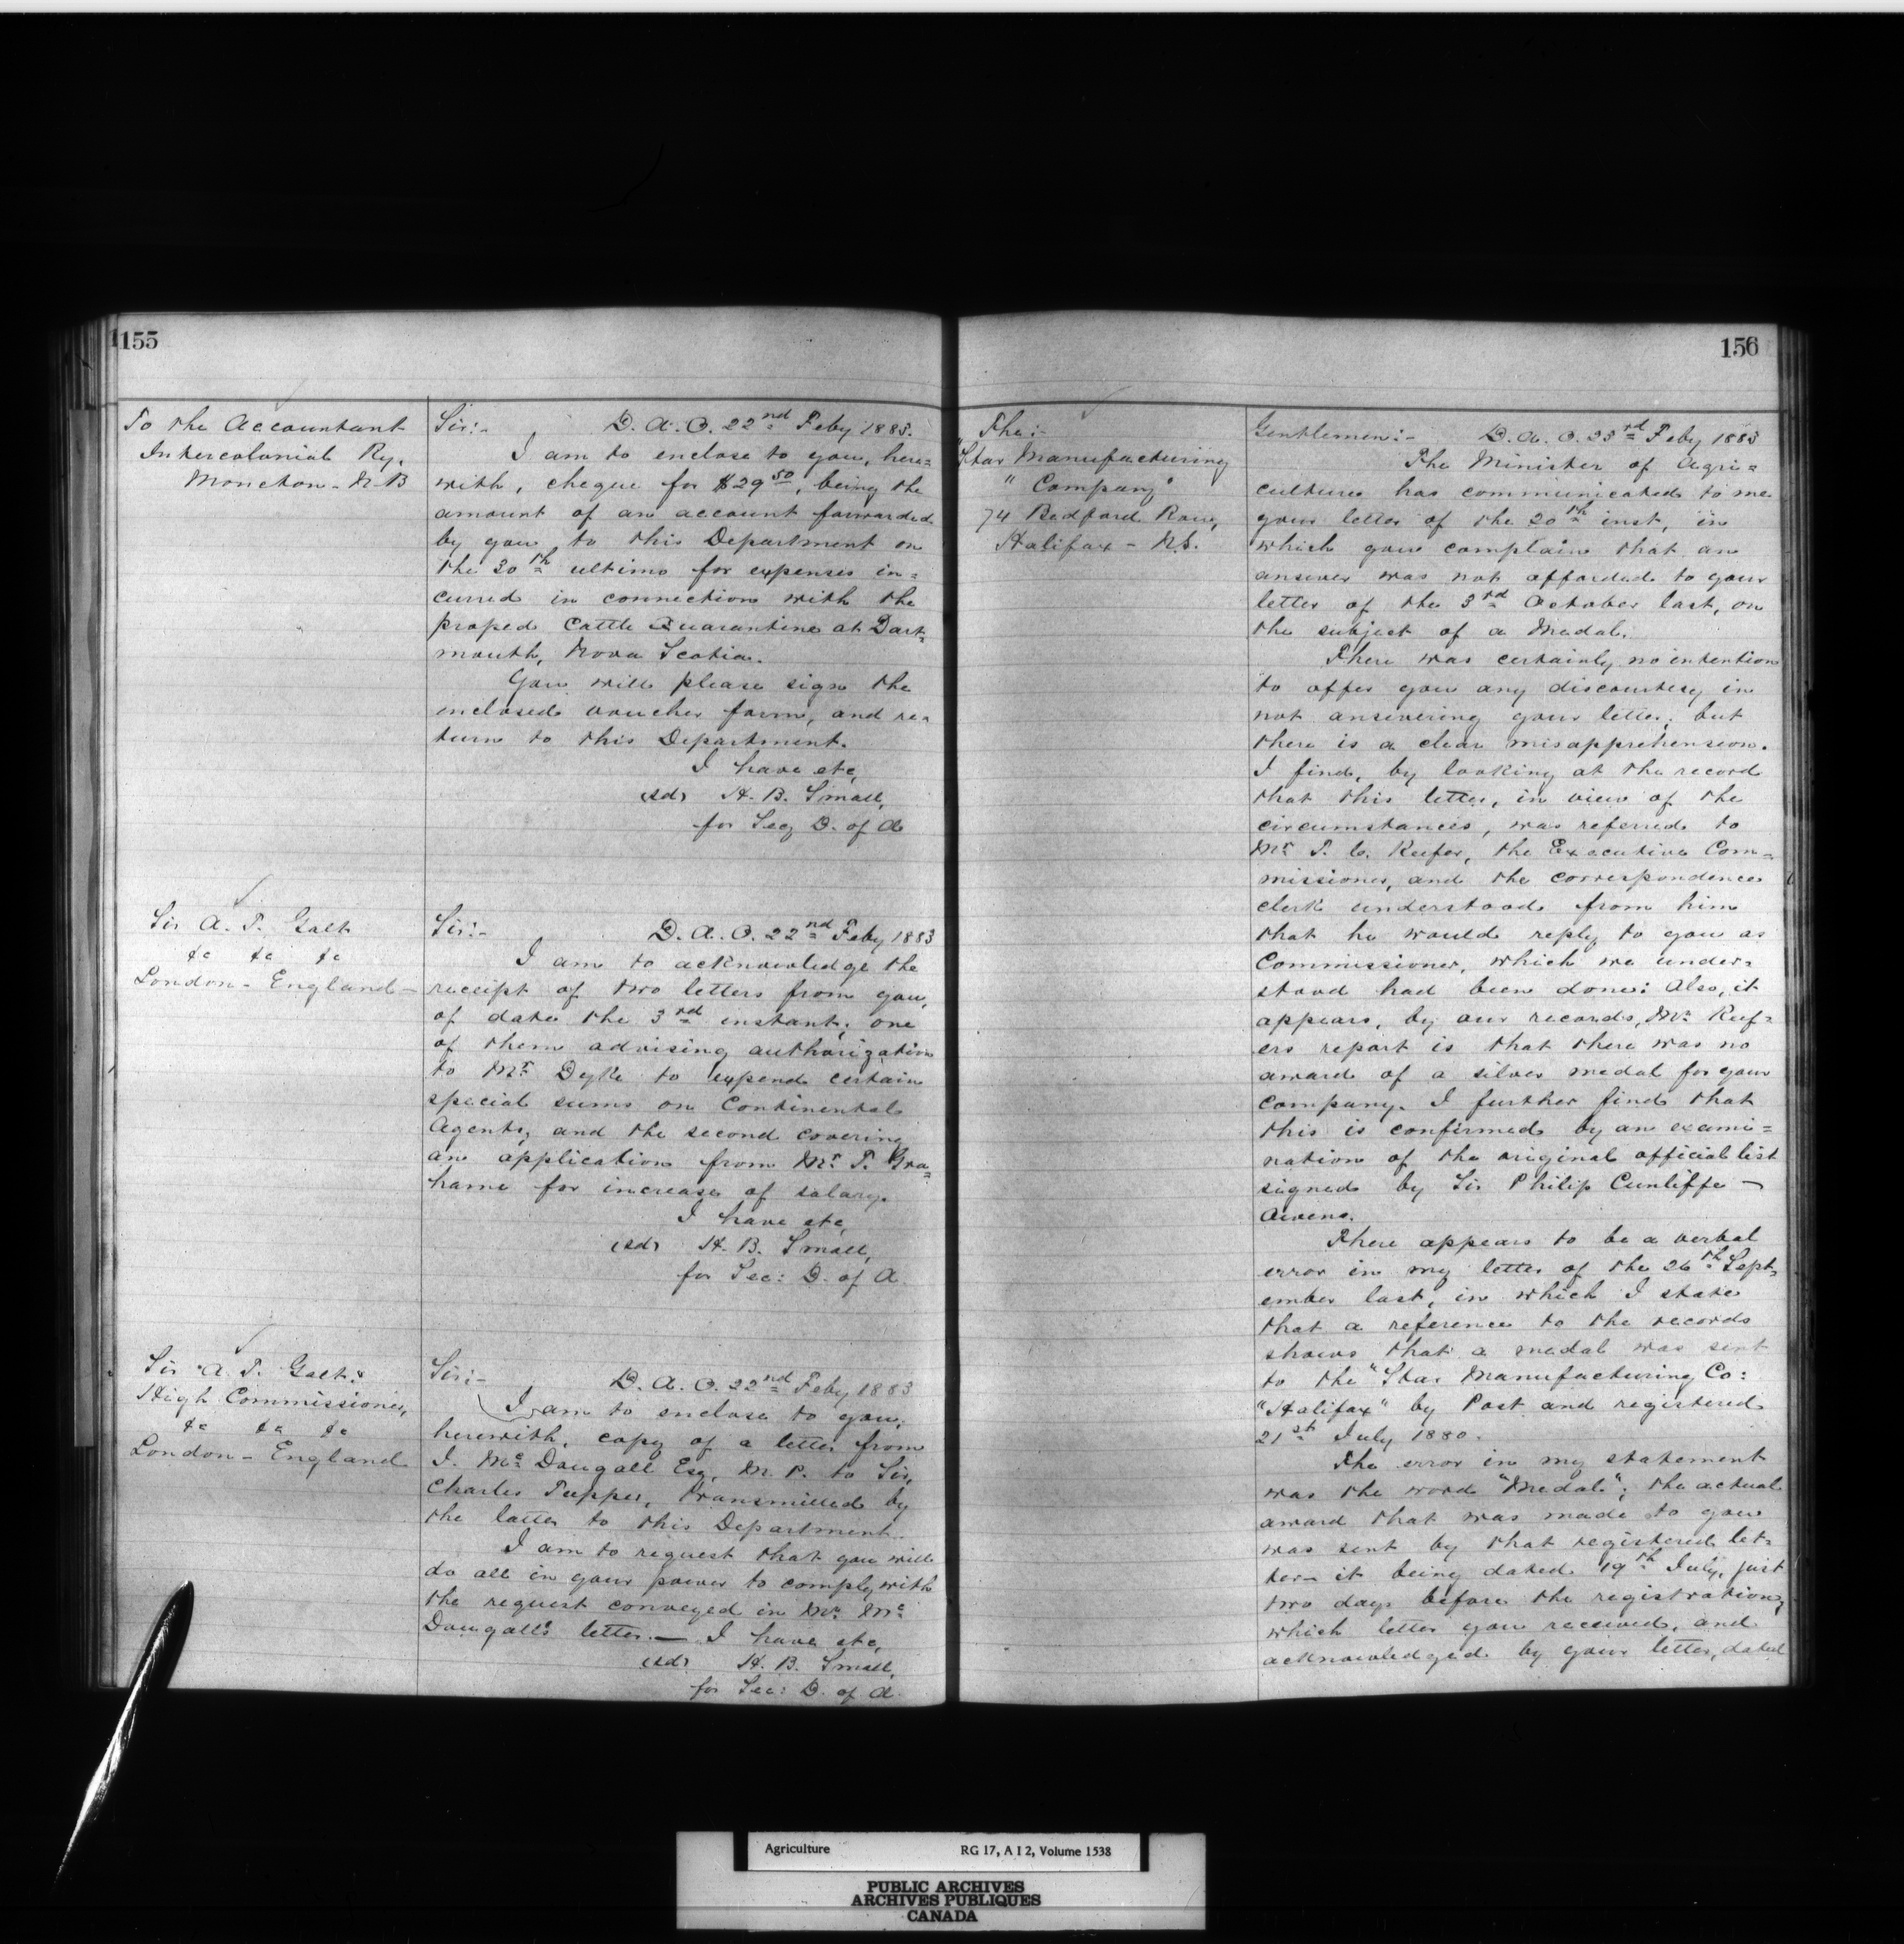 155
To the Accountant
Intercolonial Ry.
Moncton - N.B
Sir:- D. A. O. 22nd Feby 1883.
I am to enclose to you, here=
with, cheque for $29 50, being the
amount of an account forwarded
by you to this Department on
the 30th ultimo for expenses in=
curred in connection with the
proped Cattle Quarantine at Dart=
mouth, Nova Scotia.
You will please sign the
enclosed voucher form, and re=
turn to this Department.
I have etc,
(sd) H. B. Small,
for Secy D. of A
Sir A. T. Galt
&c &c &c
London - England -
Sir:- D. A. O. 22nd Feby 1883
I am to acknowledge the
receipt of two letters from you,
of date the 3rd instant; one
of them advising authorization
to Mr Dyke to expend certain
special sums on Continental
Agents, and the second covering
an application from Mr T. Gra=
hame for increase of salary.
I have etc,
(sd) H. B. Small,
for Sec: D. of A
Sir A. T. Galt.
High Commissioner,
&c &c &c
London - England
Sir:- D. A. O. 22nd Feby 1883
I am to enclose to you,
herewith, copy of a letter from
I. Mc Dougall Esq, M. P. to Sir,
Charles Tupper, transmitted by
the latter to this Department.
I am to request that you will
do all in your power to comply with
the request conveyed in Mr. Mc
Dougall's letter. — I have etc,
(sd) H. B. Small,
for Sec: D. of A.
156
The:-
"Star Manufacturing
" Company"
74 Bedford Row,
Halifax - N.S.
Gentlemen:- D. A. O. 23rd Feby 1883
The Minister of Agri=
culture has communicated to me
your letter of the 20th inst, in
which you complain that an
answer was not afforded to your
letter of the 3rd October last, on
the subject of a Medal.
There was certainly no intention
to offer you any discourtesy in
not answering your letter; but
there is a clear misapprehension.
I find, by looking at the record
that this letter, in view of the
circumstances, was referred to
Mr T. C. Keefer, the Executive Com=
missioner, and the correspondence
clerk understood from him
that he would reply to you as
Commissioner, which we under=
stood had been done: Also, it
appears, by our records, Mr. Keef=
ers report is that there was no
award of a silver medal for your
company. I further find that
this is confirmed by an exami=
nation of the original official list
signed by Sir Philip Cunliffe -
Owens.
There appears to be a verbal
error in my letter of the 26th Sept=
ember last, in which I state
that a reference to the records
shows that a medal was sent
to the "Star Manufacturing Co:
"Halifax" by Post and registered
21st July 1880.
The error in my statement
was the word "Medal"; the actual
award that was made to you
was sent by that registered let=
ter - it being dated 19th July, just
two days before the registration,
which letter you received, and
acknowledged by your letter, dated
Agriculture RG 17, A I 2, Volume 1538
PUBLIC ARCHIVES
ARCHIVES PUBLIQUES
CANADA